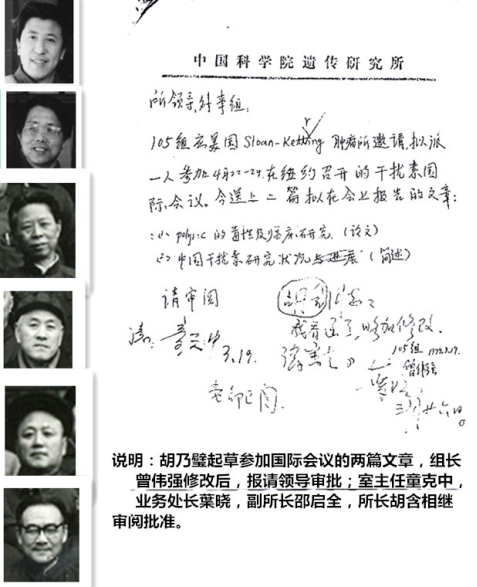 中国科学院遗传研究所
所领导,外事组:
105组应美国Sloan-Kettring肿瘤所邀请,拟派
一人参加4月22-24.在纽约召开的干扰素国
际会议。今送上二篇拟在会上报告的文章:
的毒性及临床研究.(论文)
中国干扰素研究状况与进展(简述)
请审阅
我看过了,略加修改.
105组
3.19.
已阅
说明:胡乃璧起草参加国际会议的两篇文章,组长
曾伟强修改后,报请领导审批;室主任童克中,
业务处长葉晓,副所长邵启全,所长胡含相继
审阅批准。